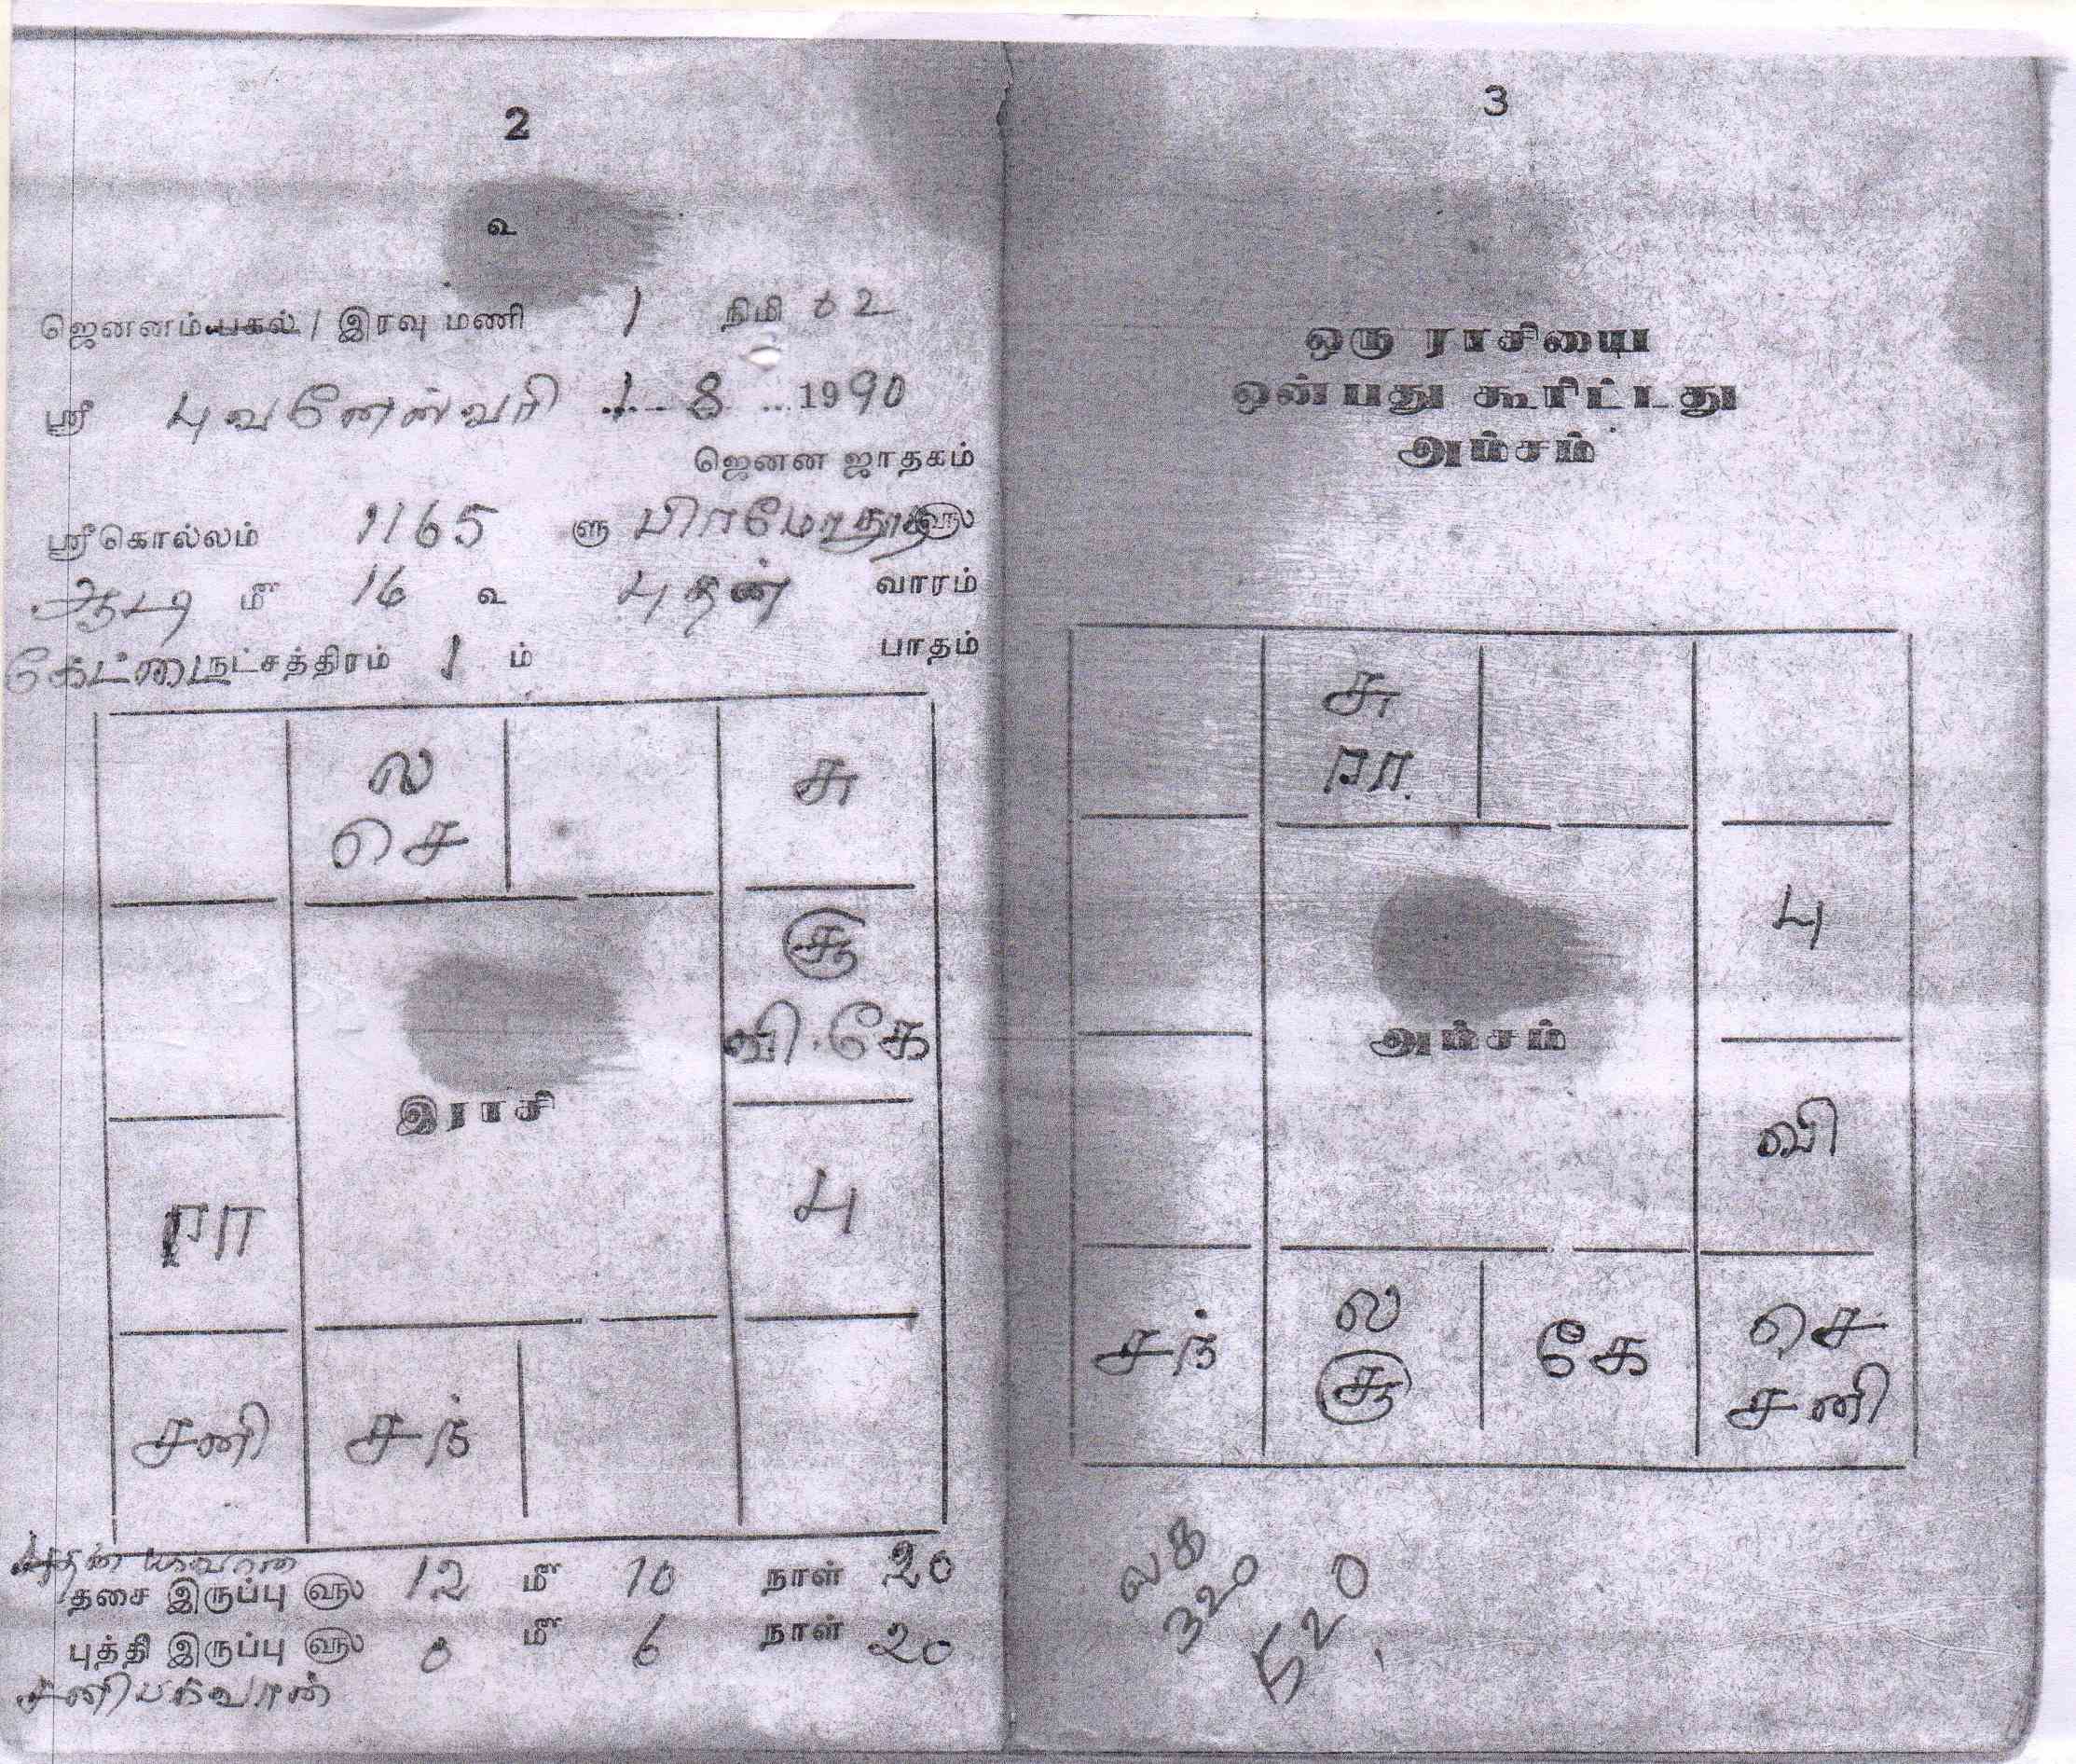 2
உ
ஜெனனம் பகல் / இரவு மணி 1 நிமி 02
ஸ்ரீ புவனேஸ்வரி 1 - 8 - 1990
ஜெனன ஜாதகம்
ஸ்ரீ கொல்லம் 1165 ளு ௵
ஆடி மீ 16 உ புதன் வாரம்
கேட்டை நட்சத்திரம் 1 ம் பாதம்
ல
செ
சு
சூ
வி . கே
இராசி
ரா
பு
சனி சந்
தசை இருப்பு ௵ 12 மீ 10 நாள் 20
புத்தி இருப்பு ௵ 0 மீ 6 நாள் 20
சனிபகவான்
3
ஒரு ராசியை
ஒன்பது கூரிட்டது
அம்சம்
சு
ரா
பு
அம்சம்
வி
சந் ல கே செ
சூ சனி
320
520